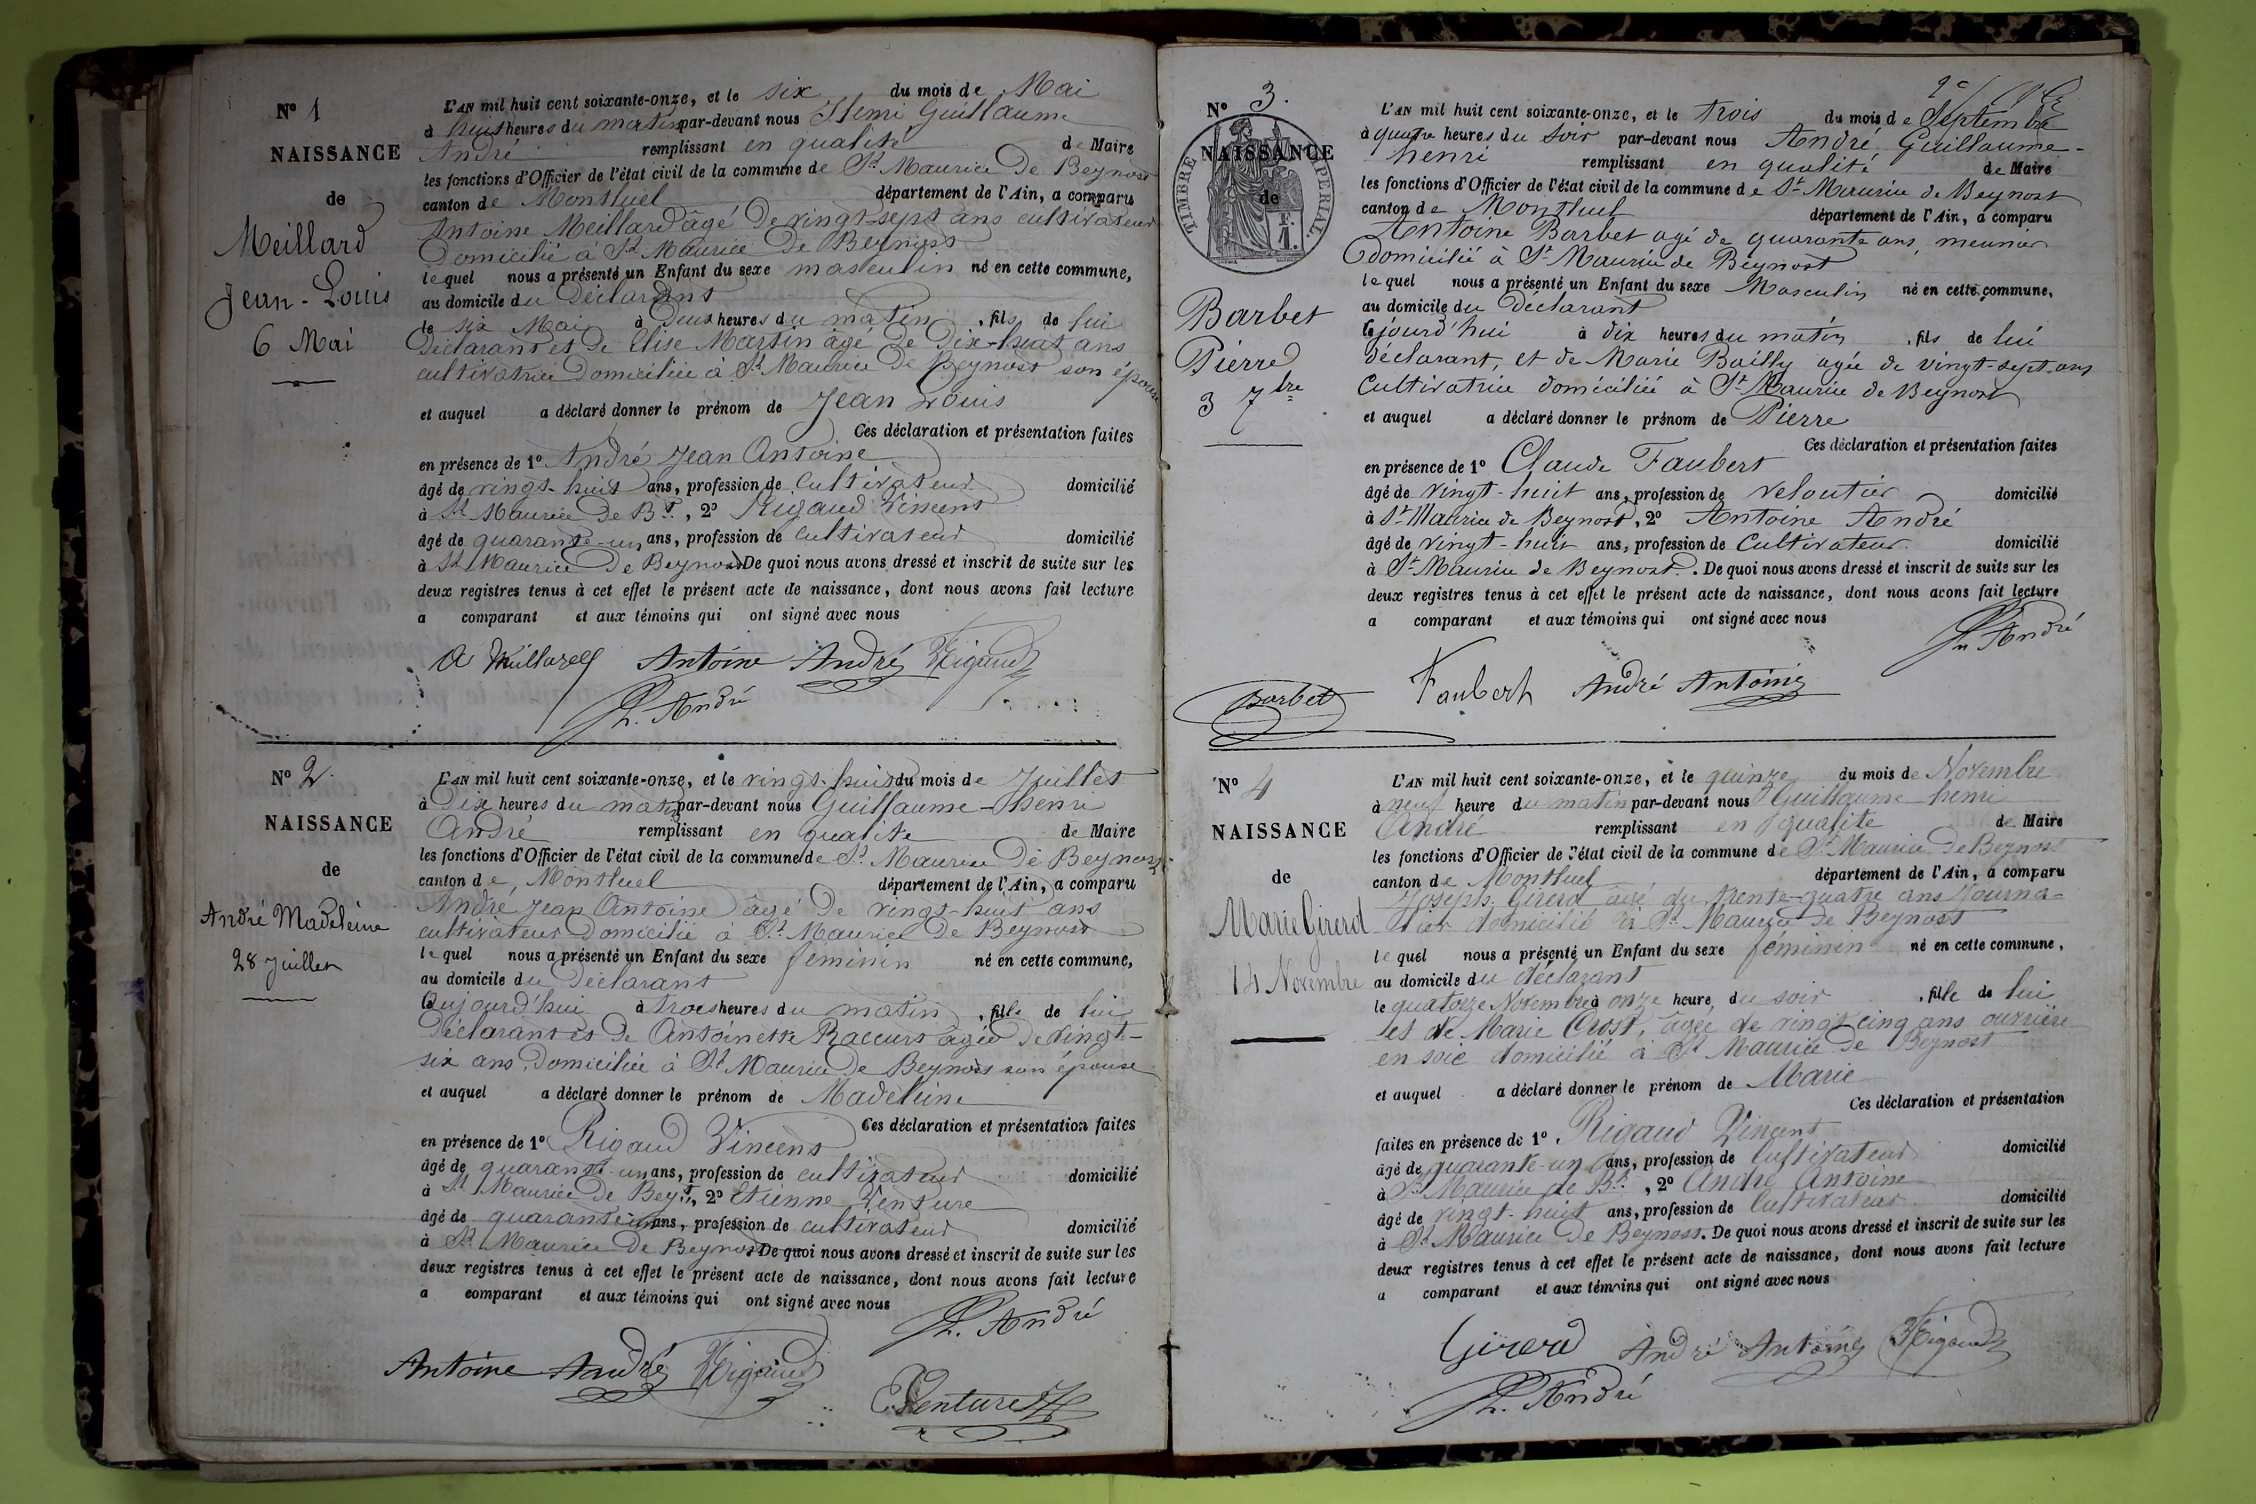 N° 1
NAISSANCE
de
Meillard
Jean-Louis
6 Mai
L'AN mil huit cent soixante-onze, et le six du mois de Mai
à huit heures du matin par-devant nous Henri Guillaume
André remplissant en qualité de Maire
les fonctions d'Officier de l'état civil de la commune de St Maurice De Beynost
canton de Montluel département de l'Ain, a comparu
Antoine Meillard âgé De vingt-sept ans cultivateur
Domicilié à St Maurice De Beynost
lequel nous a présenté un Enfant du sexe masculin né en cette commune,
au domicile du Déclarant
le six Mai à Deux heures du matin, fils de lui
Déclarant et de Elise Martin âgé de Dix-huit ans
cultivatrice Domiciliée à St Maurice De Beynost son épouse
et auquel a déclaré donner le prénom de Jean Louis
Ces déclaration et présentation faites
en présence de 1° André Jean Antoine
âgé de vingt-huit ans, profession de Cultivateur domicilié
à St Maurice De Bt, 2° Rigaud Vincent
âgé de quarante-un ans, profession de Cultivateur domicilié
à St Maurice De Beynost De quoi nous avons dressé et inscrit de suite sur les
deux registres tenus à cet effet le présent acte de naissance, dont nous avons fait lecture
a comparant et aux témoins qui ont signé avec nous
A Meillard Antoine André Rigaud
h. André
N° 2
NAISSANCE
de
André Madeleine
28 Juillet
L'AN mil huit cent soixante-onze, et le vingt-huit du mois de Juillet
à Dix heures du matin par-devant nous Guillaume-henri
André remplissant en qualité de Maire
les fonctions d'Officier de l'état civil de la commune de St Maurice De Beynost
canton de Montluel département de l'Ain, a comparu
André Jean Antoine âgé De vingt-huit ans
cultivateur Domicilié à St Maurice De Beynost
lequel nous a présenté un Enfant du sexe féminin né en cette commune,
au domicile du Déclarant
Aujourd'hui à trois heures du matin, fille de lui
Déclarant et de Antoinette Raccurt âgée De vingt-
six ans Domiciliée à St Maurice De Beynost son épouse
et auquel a déclaré donner le prénom de Madeleine
Ces déclaration et présentation faites
en présence de 1° Rigaud Vincent
âgé de quarante-un ans, profession de cultivateur domicilié
à St Maurice De Beyt, 2° Etienne Venture
âgé de quarante ans, profession de cultivateur domicilié
à St Maurice De Beynost De quoi nous avons dressé et inscrit de suite sur les
deux registres tenus à cet effet le présent acte de naissance, dont nous avons fait lecture
a comparant et aux témoins qui ont signé avec nous
h. André
Antoine André Rigaud
E Venture
N° 3.
NAISSANCE
de
TIMBRE IMPERIAL
F.
1.
Barbet
Pierre
3 7bre
L'AN mil huit cent soixante-onze, et le trois du mois de Septembre
à quatre heures du soir par-devant nous André Guillaume-
henri remplissant en qualité de Maire
les fonctions d'Officier de l'état civil de la commune de St Maurice de Beynost
canton de Montluel département de l'Ain, a comparu
Antoine Barbet agé de quarante ans, meunier
domicilié à St Maurice de Beynost
lequel nous a présenté un Enfant du sexe Masculin né en cette commune,
au domicile du Déclarant
Cejourd'hui à dix heures du matin, fils de lui
déclarant, et de Marie Bailly agée de vingt-sept ans
Cultivatrice domiciliée à St Maurice de Beynost
et auquel a déclaré donner le prénom de Pierre
Ces déclaration et présentation faites
en présence de 1° Claude Faubert
âgé de vingt-huit ans, profession de veloutier domicilié
à St Maurice de Beynost, 2° Antoine André
âgé de vingt-huit ans, profession de Cultivateur domicilié
à St Maurice de Beynost. De quoi nous avons dressé et inscrit de suite sur les
deux registres tenus à cet effet le présent acte de naissance, dont nous avons fait lecture
a comparant et aux témoins qui ont signé avec nous
h André
Barbet Faubert André Antoine
N° 4
NAISSANCE
de
Marie Girerd
14 Novembre
L'AN mil huit cent soixante-onze, et le quinze du mois de Novembre
à neuf heure du matin par-devant nous Guillaume henri
André remplissant en qualité de Maire
les fonctions d'Officier de l'état civil de la commune de St Maurice De Beynost
canton de Montluel département de l'Ain, a comparu
Joseph Girerd âgé du trente-quatre ans Journa-
lier domicilié à St Maurice de Beynost
lequel nous a présenté un Enfant du sexe féminin né en cette commune,
au domicile du déclarant
le quatorze Novembre à onze heure du soir, fille de lui
et de Marie Crost, âgée de vingt cinq ans ouvrière
en soie domicilié à St Maurice de Beynost
et auquel a déclaré donner le prénom de Marie
Ces déclaration et présentation
faites en présence de 1° Rigaud Vincent
âgé de quarante-un ans, profession de Cultivateur domicilié
à St Maurice de Bt, 2° André Antoine
âgé de vingt-huit ans, profession de Cultivateur domicilié
à St Maurice De Beynost. De quoi nous avons dressé et inscrit de suite sur les
deux registres tenus à cet effet le présent acte de naissance, dont nous avons fait lecture
a comparant et aux témoins qui ont signé avec nous
Girerd André Antoine Rigaud
h. André